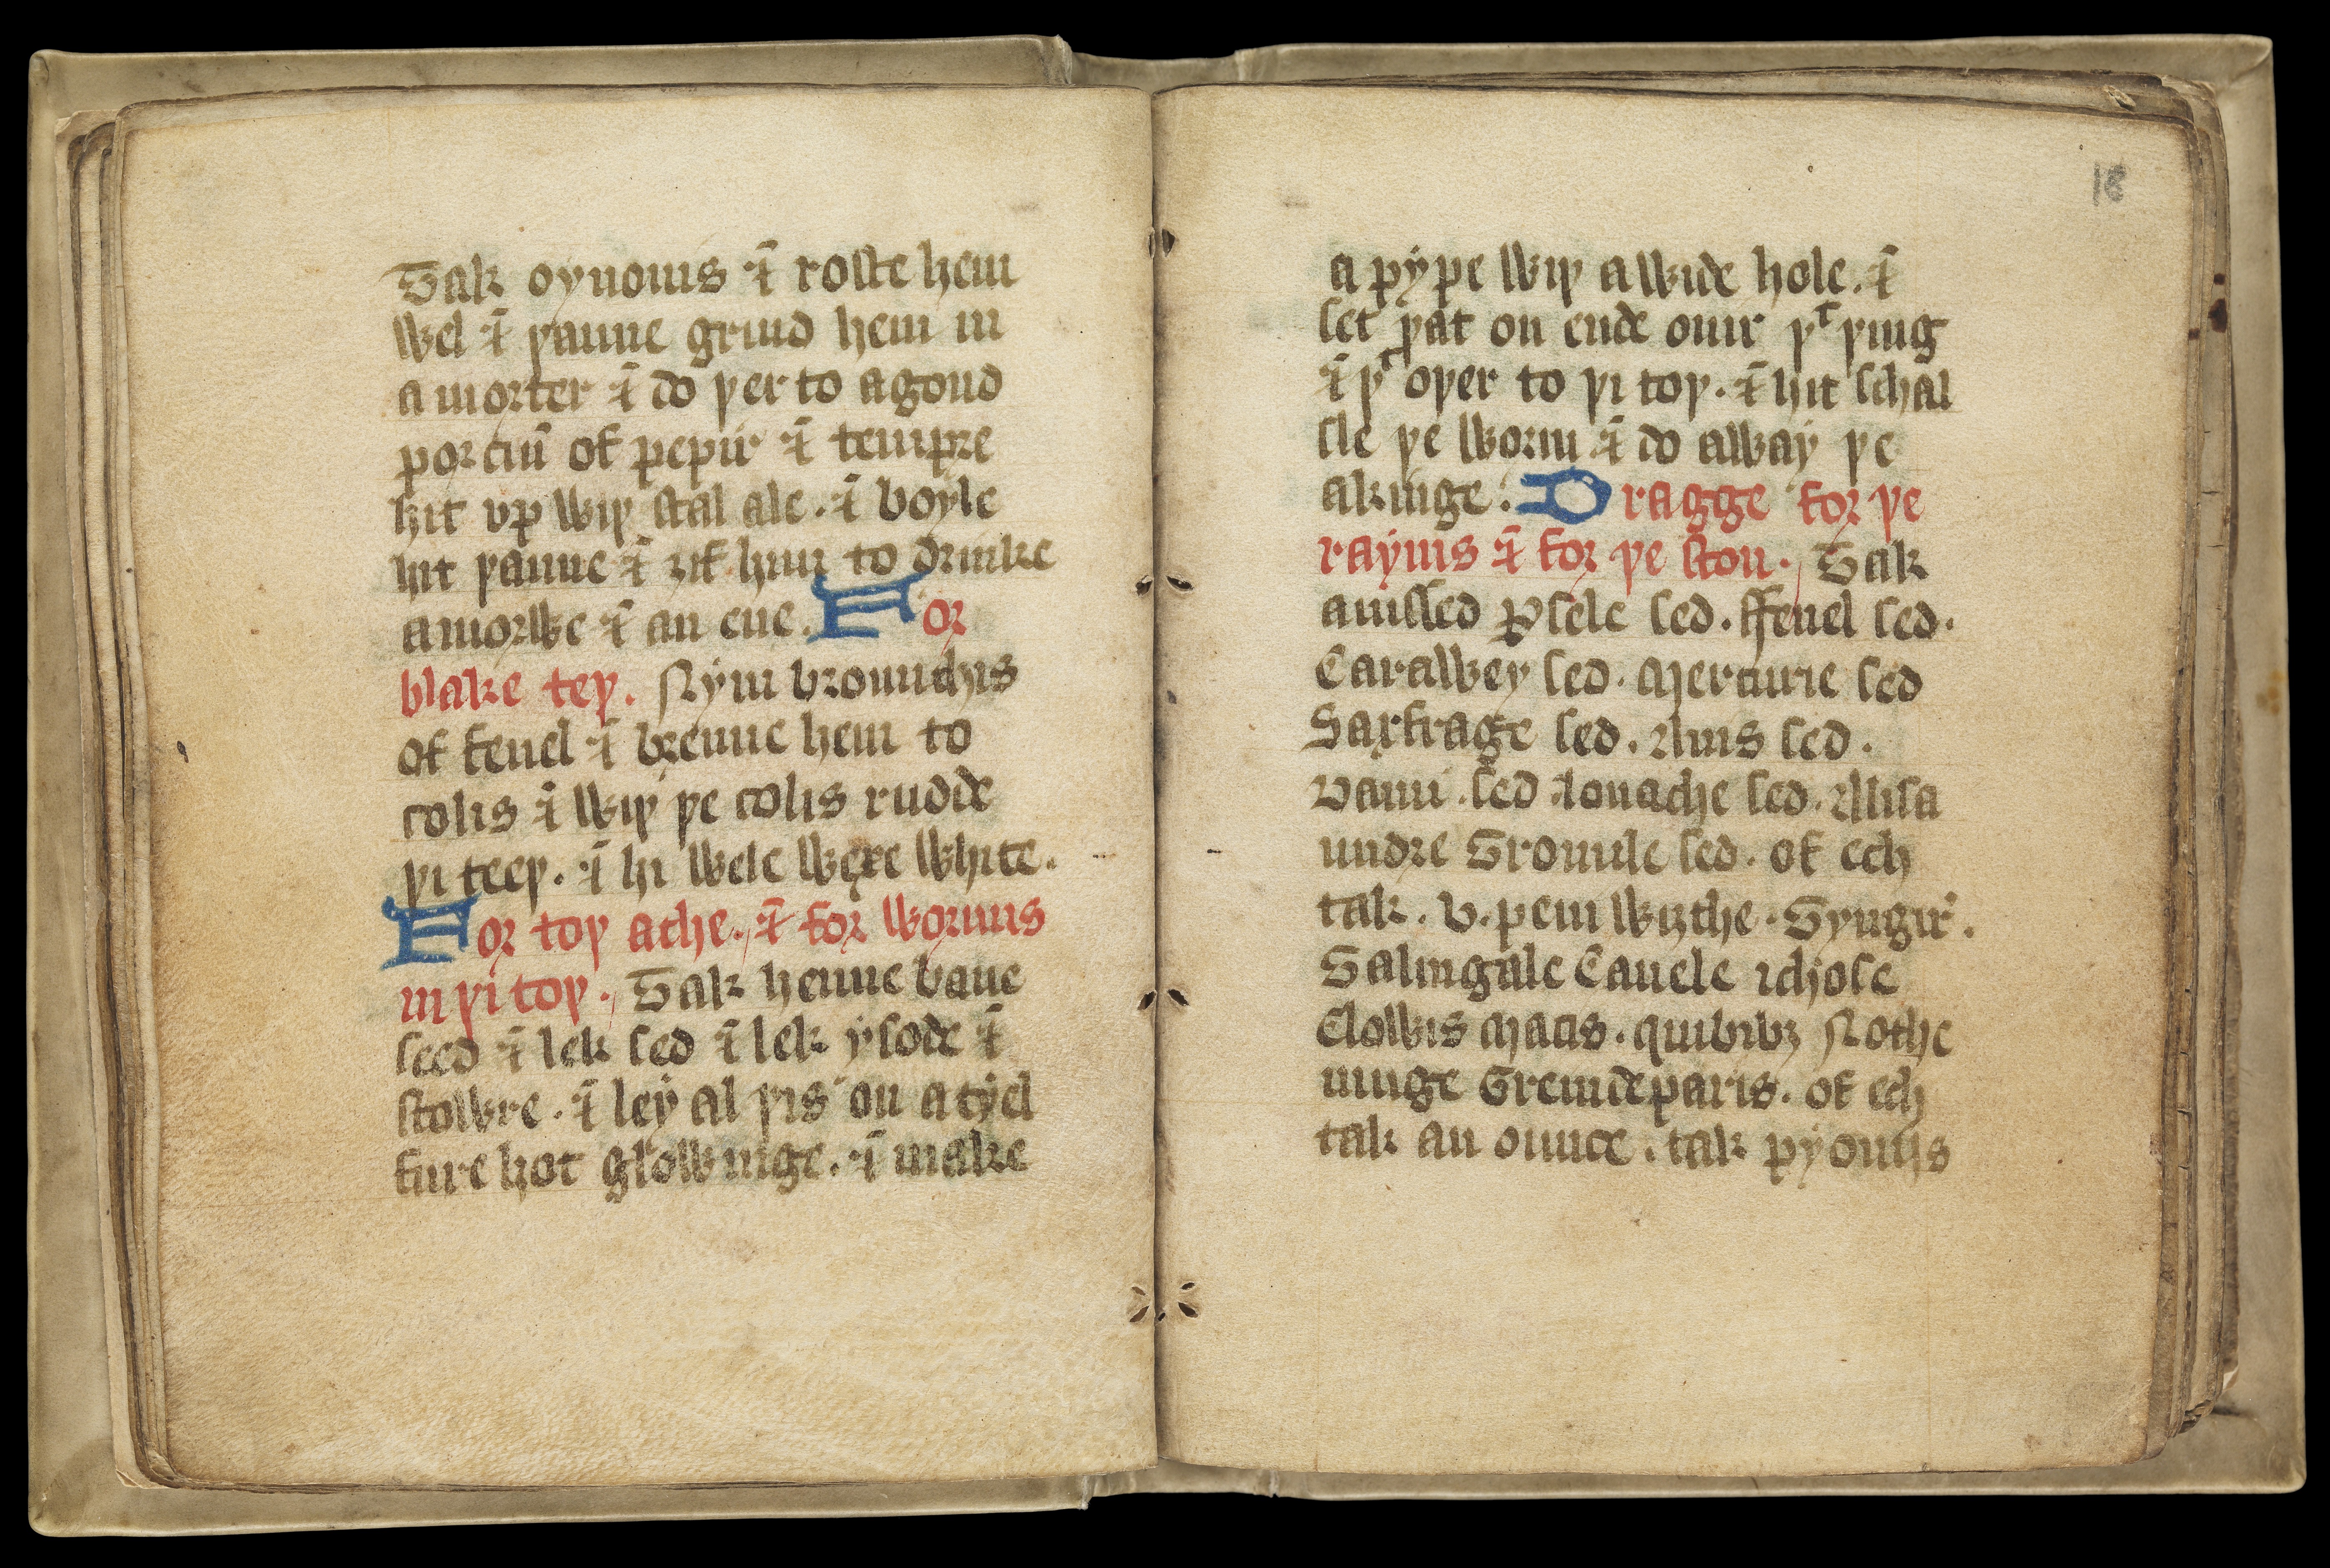 Tak oynouns ⁊ roste hem
wel ⁊ þanne grind hem in
a morter ⁊ do þer to a goud
porciũ of pepir ⁊ tempre
hit vp wiþ stal ale. ⁊ boyle
hit þanne ⁊ ȝif him to drinke
a morwe ⁊ an eue. For
blake teþ. Nym bronnchis
of fenel ⁊ brenne hem to
colis ⁊ wiþ þe colis rudde
þi teeþ. ⁊ hi wele wexe white.
For toþ ache. ⁊ for wormis
in þi toþ. Tak henne bane
seed ⁊ lek sed ⁊ lek ysode ⁊
stowre. ⁊ ley al þis on a tyel
fure hot glowinge. ⁊ make
18
a pype wiþ a wide hole. ⁊
set þat on ende ouir þᵗ þing
⁊ þᵗ oþer to þi toþ. ⁊ hit schal
sle þe worm ⁊ do away þe
akinge. Dragge for þe
raynis ⁊ for þe ston. Tak
anissed ꝑsele sed. ffenel sed.
Carawey sed. Mercurie sed
Saxfrage sed. Anis sed.
Daun sed louache sed. Alisa
undre Gromile sed. of ech
tak. v. peni wiȝthe. Gyngir.
Galingale Canele ichose
Clowis Macis. quibibȝ Nothe
muge Greindeparis. of ech
tak an ounce. tak pyonijs